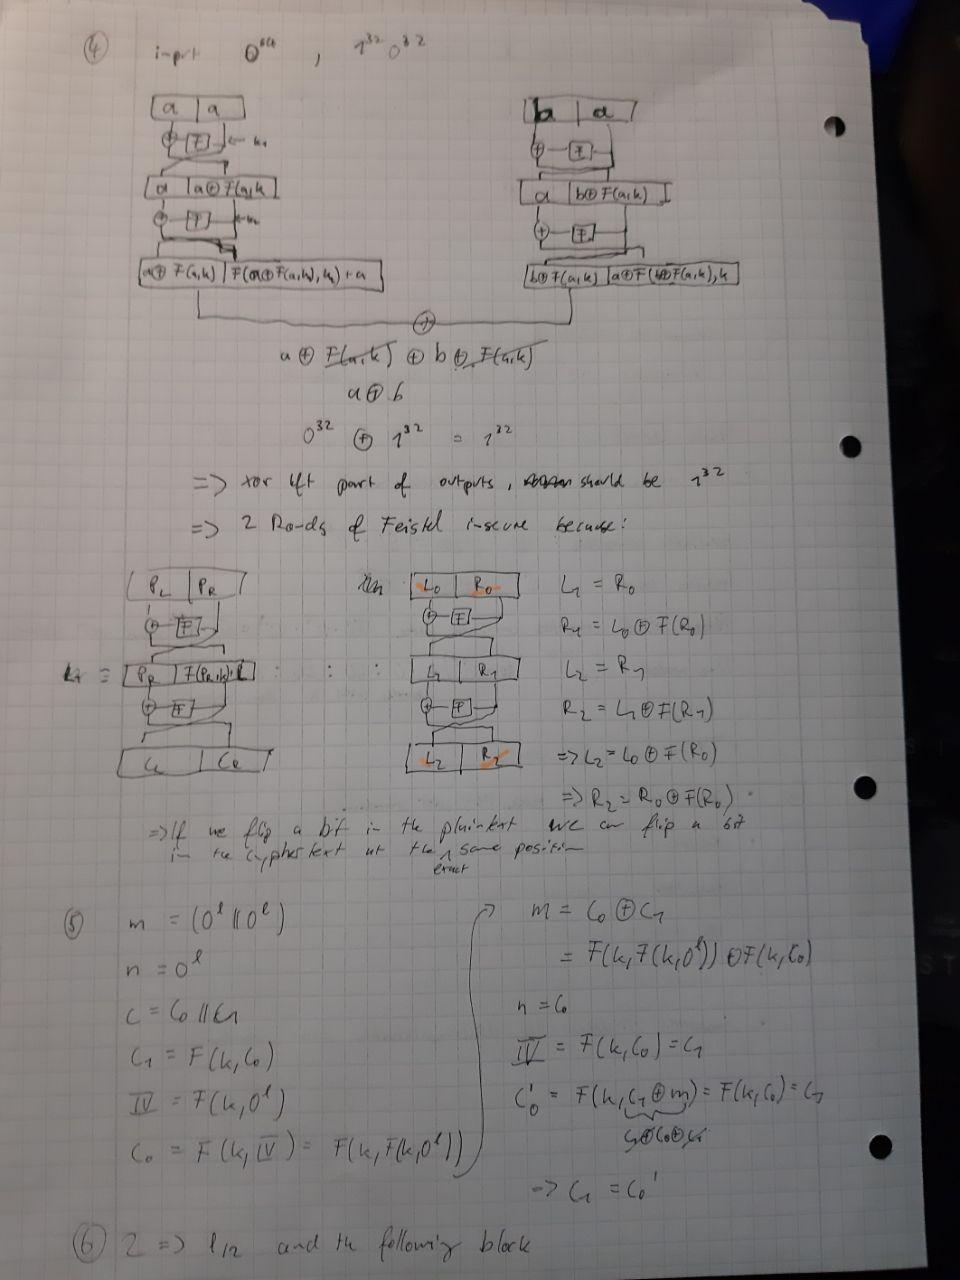 ④ input 0⁶⁴ , 1³²0³²
a | a
b | a
F ← k₁
F
a | a⊕F(a,k)
a | b⊕F(a,k)
F
F
a⊕F(a,k) | F(a⊕F(a,k),k)+a
b⊕F(a,k) | a⊕F(b⊕F(a,k),k
⊕
a ⊕ F(a,k) ⊕ b ⊕ F(a,k)
a⊕b
0³² ⊕ 1³² = 1³²
=> xor left part of outputs, should be 1³²
=> 2 Rounds of Feistel insecure because:
P_L | P_R
L₀ | R₀
L₁ = R₀
F
F
R₁ = L₀ ⊕ F(R₀)
P_R | F(P_R,k)
: : :
L₁ | R₁
L₂ = R₁
F
F
R₂ = L₁⊕F(R₁)
C_L | C_R
L₂ | R₂
=> L₂ = L₀ ⊕ F(R₀)
=> R₂ = R₀⊕F(R₀)
=> If we flip a bit in the plaintext we can flip a bit
in the cyphertext at the exact same position
⑤ m = (0ˡ || 0ˡ)
n = 0ˡ
c = C₀ || C₁
C₁ = F(k,C₀)
IV = F(k,0ˡ)
C₀ = F(k,IV) = F(k,F(k,0ˡ))
m = C₀ ⊕ C₁
= F(k,F(k,0ˡ)) ⊕F(k,C₀)
n = C₀
IV = F(k,C₀) = C₁
C₀' = F(k,C₁⊕m) = F(k,C₀) = C₁
C₁⊕C₀⊕C₁
=> C₁ = C₀'
⑥ 2 => l/2 and the following block